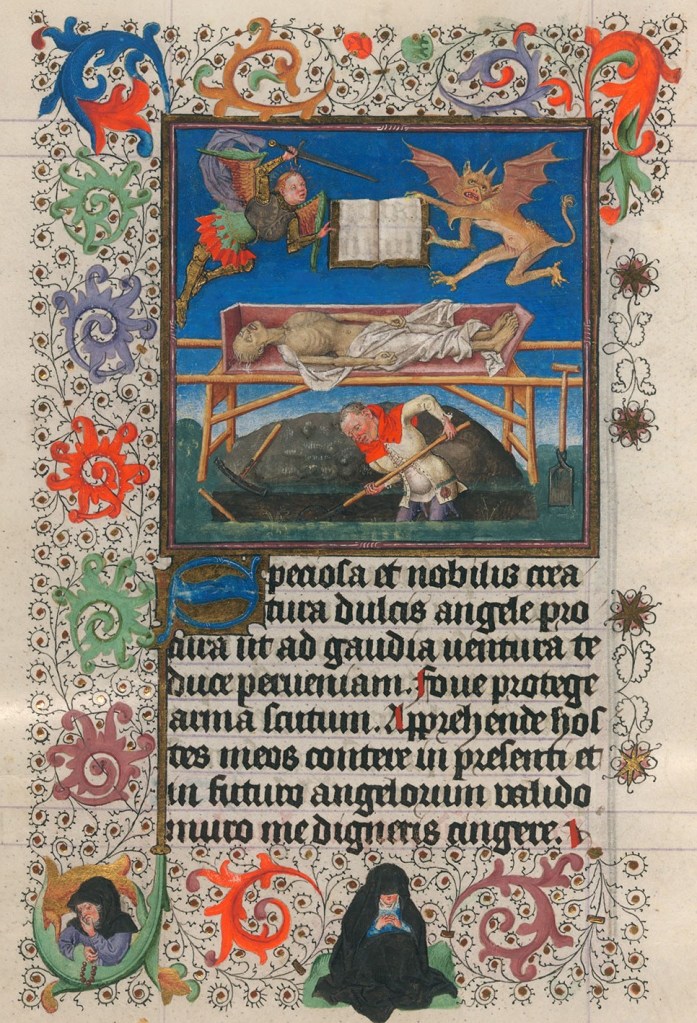 Speciosa et nobilis crea
tura dulcis angele pro
cura ut ad gaudia uentura te
duce perueniam. Foue protege
arma scutum. Apprehende hos
tes meos contere in presenti et
in futuro angelorum ualido
muro me digneris cingere. I